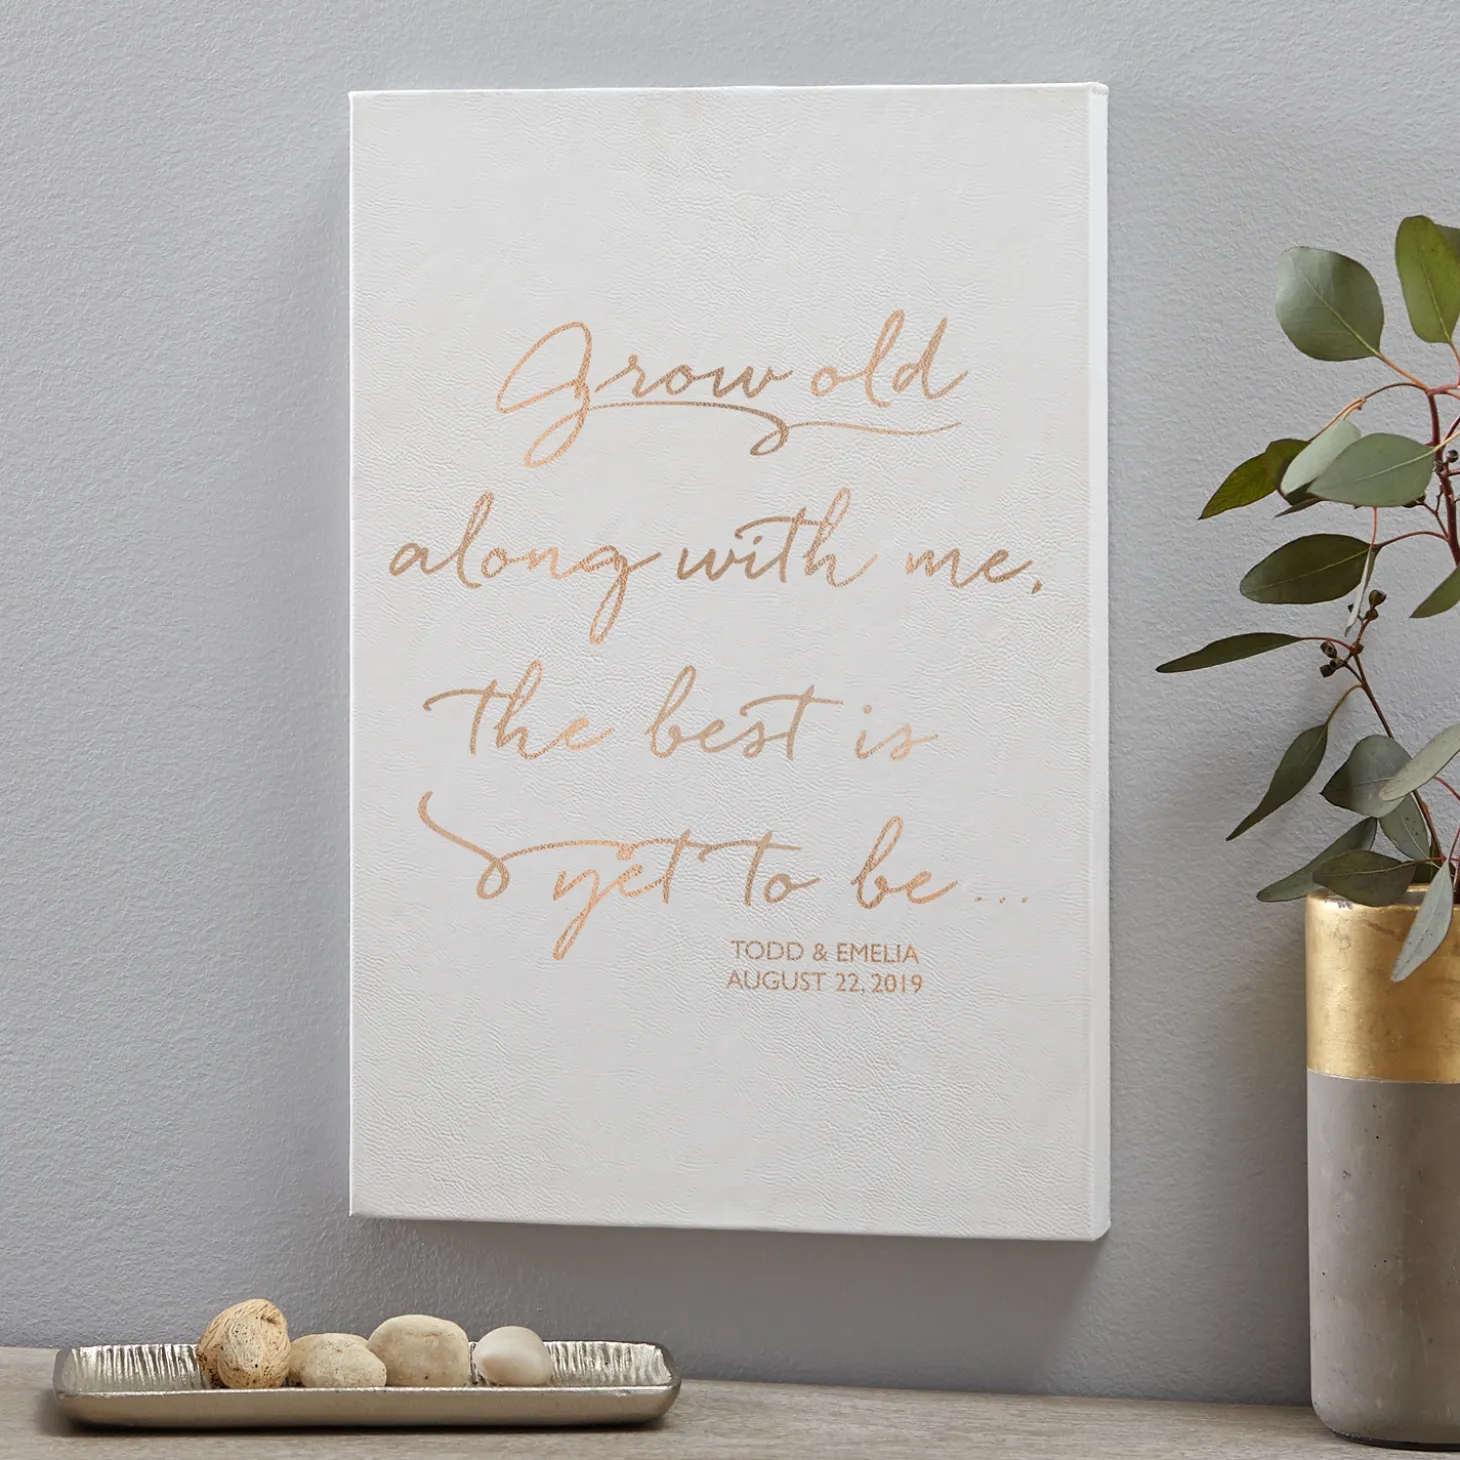 Grow old
along with me,
the best is
yet to be...
TODD & EMELIA
AUGUST 22, 2019